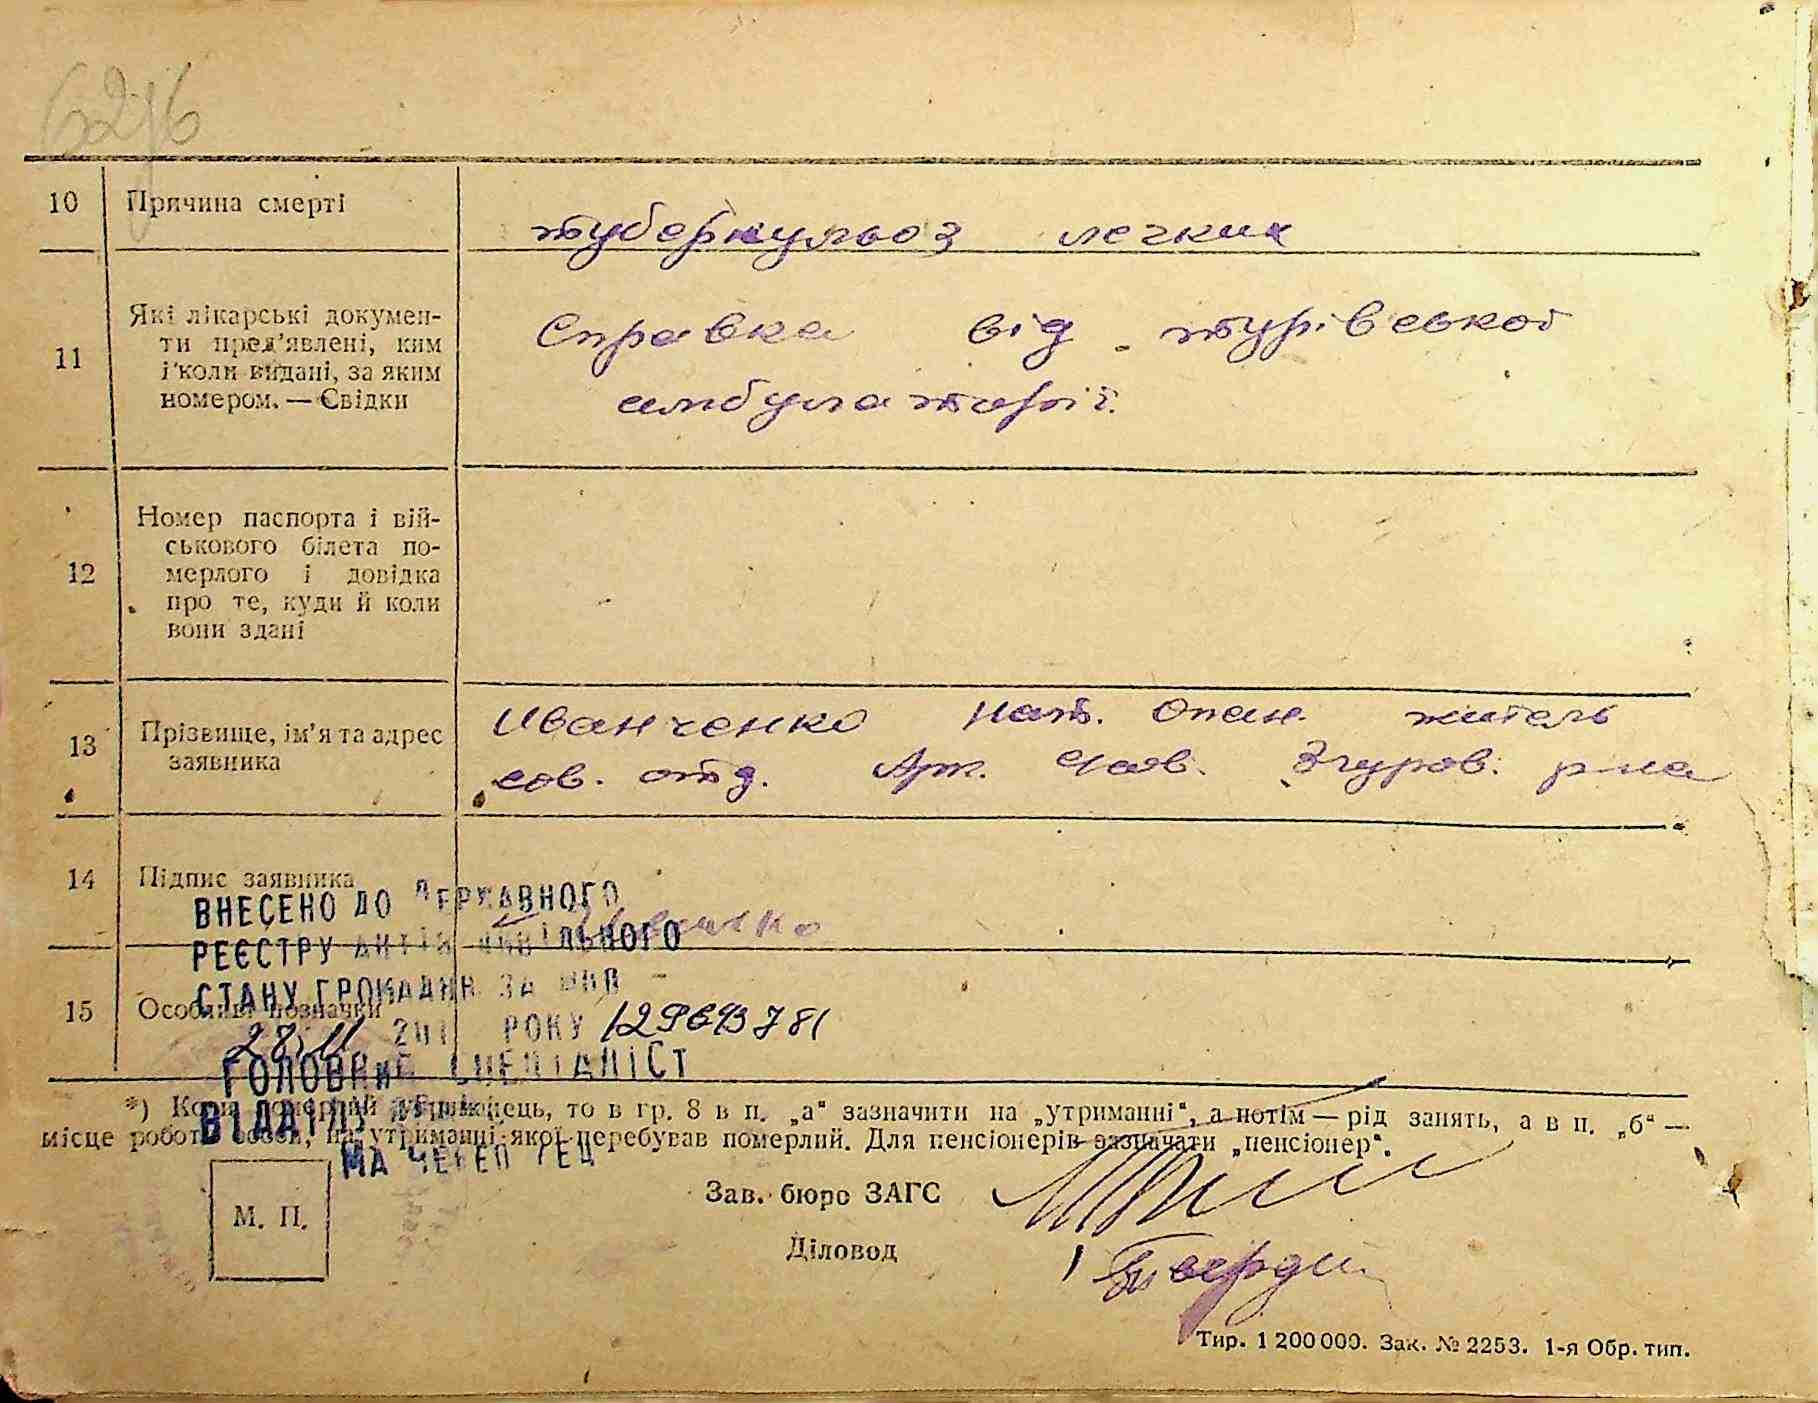 10 Причина смерті
туберкульоз легких
11 Які лікарські докумен-
ти пред'явлені, ким
і коли видані, за яким
номером. — Свідки
Справка від турівської
амбулаторії.
12 Номер паспорта і вій-
ськового білета по-
мерлого і довідка
про те, куди й коли
вони здані
13 Прізвище, ім'я та адрес
заявника
Иванченко Нат. Опан. житель
сов. отд. Арт. Згуров. р-на
14 Підпис заявника
ВНЕСЕНО ДО ДЕРЖАВНОГО
РЕЄСТРУ АКТІВ ЦИВІЛЬНОГО
СТАНУ ГРОМАДЯН ЗА
15 Особливі позначки
28.11 201 РОКУ 129643781
ГОЛОВНИЙ СПЕЦІАЛІСТ
ВІДДІЛУ
*) Коли померлий утриманець, то в гр. 8 в п. „а“ зазначити на „утриманні“, а потім — рід занять, а в п. „б“ —
місце роботи особи, на утриманні якої перебував померлий. Для пенсіонерів зазначати „пенсіонер“.
М. П.
Зав. бюро ЗАГС
Діловод
Тир. 1 200 000. Зак. № 2253. 1-я Обр. тип.